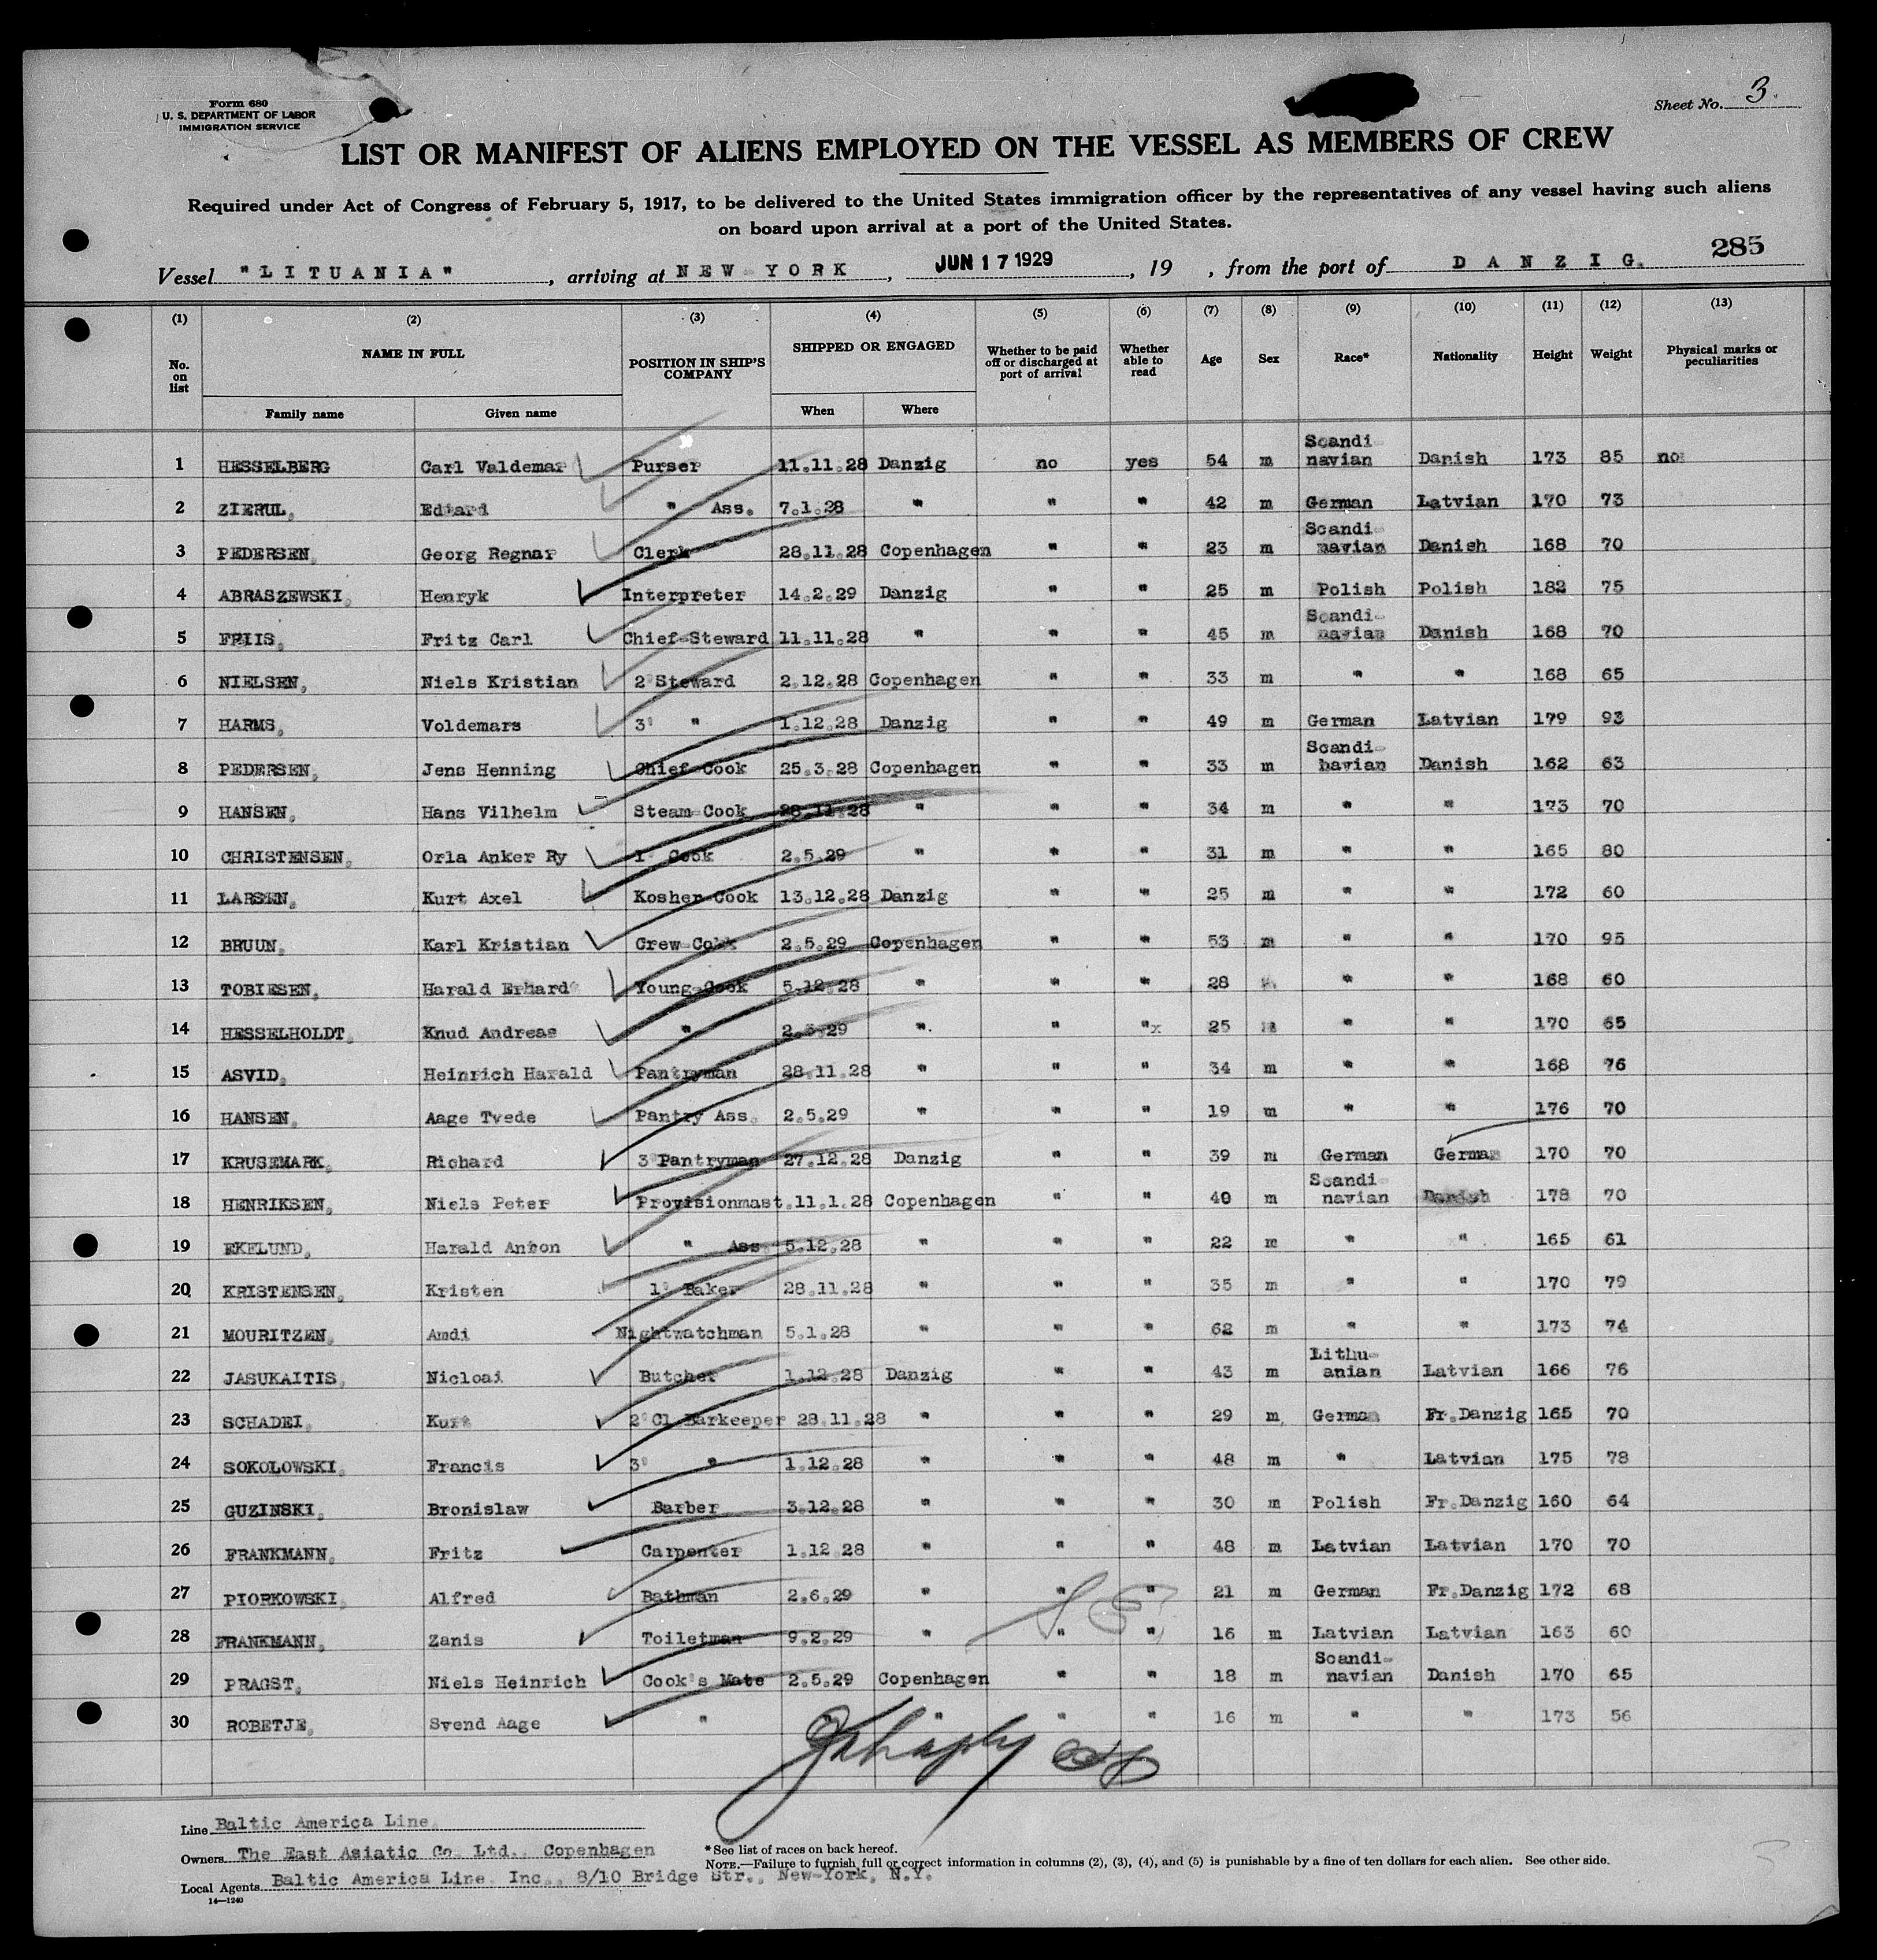 Form 680
U. S. DEPARTMENT OF LABOR
IMMIGRATION SERVICE
Sheet No. 3.
LIST OR MANIFEST OF ALIENS EMPLOYED ON THE VESSEL AS MEMBERS OF CREW
Required under Act of Congress of February 5, 1917, to be delivered to the United States immigration officer by the representatives of any vessel having such aliens
on board upon arrival at a port of the United States.
285
Vessel "LITUANIA", arriving at NEW-YORK, JUN 17 1929, 19 , from the port of DANZIG.
(1) (2) (3) (4) (5) (6) (7) (8) (9) (10) (11) (12) (13)
No. on list NAME IN FULL POSITION IN SHIP'S COMPANY SHIPPED OR ENGAGED Whether to be paid off or discharged at port of arrival Whether able to read Age Sex Race* Nationality Height Weight Physical marks or peculiarities
Family name Given name When Where
1 HESSELBERG Carl Valdemar Purser 11.11.28 Danzig no yes 54 m Scandi-navian Danish 173 85 no
2 ZIERUL, Eduard " Ass. 7.1.28 " " " 42 m German Latvian 170 73
3 PEDERSEN, Georg Regnar Clerk 28.11.28 Copenhagen " " 23 m Scandi-navian Danish 168 70
4 ABRASZEWSKI, Henryk Interpreter 14.2.29 Danzig " " 25 m Polish Polish 182 75
5 FRIIS, Fritz Carl Chief-Steward 11.11.28 " " " 45 m Scandi-navian Danish 168 70
6 NIELSEN, Niels Kristian 2°Steward 2.12.28 Copenhagen " " 33 m " " 168 65
7 HARMS, Voldemars 3° " 1.12.28 Danzig " " 49 m German Latvian 179 93
8 PEDERSEN, Jens Henning Chief-Cook 25.3.28 Copenhagen " " 33 m Scandi-navian Danish 162 63
9 HANSEN, Hans Vilhelm Steam-Cook 28.11.28 " " " 34 m " " 173 70
10 CHRISTENSEN, Orla Anker Ry 1° Cook 2.5.29 " " " 31 m " " 165 80
11 LARSEN, Kurt Axel Kosher-Cook 13.12.28 Danzig " " 25 m " " 172 60
12 BRUUN, Karl Kristian Crew-Cook 2.5.29 Copenhagen " " 53 m " " 170 95
13 TOBIESEN, Harald Erhard Young-Cook 5.12.28 " " " 28 " " 168 60
14 HESSELHOLDT, Knud Andreas " 2.5.29 " " "x 25 m " " 170 65
15 ASVID, Heinrich Harald Pantryman 28.11.28 " " " 34 m " " 168 76
16 HANSEN, Aage Tvede Pantry Ass. 2.5.29 " " 19 m " " 176 70
17 KRUSEMARK, Richard 3°Pantryman 27.12.28 Danzig " " 39 m German German 170 70
18 HENRIKSEN, Niels Peter Provisionmast. 11.1.28 Copenhagen " " 40 m Scandi-navian Danish 178 70
19 EKELUND, Harald Anton " Ass 5.12.28 " " " 22 m " " 165 61
20 KRISTENSEN, Kristen 1° Baker 28.11.28 " " " 35 m " " 170 79
21 MOURITZEN, Amdi Nightwatchman 5.1.28 " " " 62 m " " 173 74
22 JASUKAITIS, Nicloai Butcher 1.12.28 Danzig " " 43 m Lithu-anian Latvian 166 76
23 SCHADEI, Kurt 2°Cl.Barkeeper 28.11.28 " " " 29 m German Fr.Danzig 165 70
24 SOKOLOWSKI, Francis 3° " 1.12.28 " " " 48 m " Latvian 175 78
25 GUZINSKI, Bronislaw Barber 3.12.28 " " " 30 m Polish Fr.Danzig 160 64
26 FRANKMANN, Fritz Carpenter 1.12.28 " " " 48 m Latvian Latvian 170 70
27 PIORKOWSKI, Alfred Bathman 2.6.29 " " " 21 m German Fr.Danzig 172 68
28 FRANKMANN, Zanis Toiletman 9.2.29 " " " 16 m Latvian Latvian 163 60
29 PRAGST, Niels Heinrich Cook's Mate 2.5.29 Copenhagen " " 18 m Scandi-navian Danish 170 65
30 ROBETJE, Svend Aage " " " " " 16 m " " 173 56
Line Baltic America Line.
Owners The East Asiatic Co. Ltd., Copenhagen
Local Agents Baltic America Line. Inc., 8/10 Bridge Str., New-York, N.Y.
14—1240
*See list of races on back hereof.
NOTE.—Failure to furnish full or correct information in columns (2), (3), (4), and (5) is punishable by a fine of ten dollars for each alien. See other side.